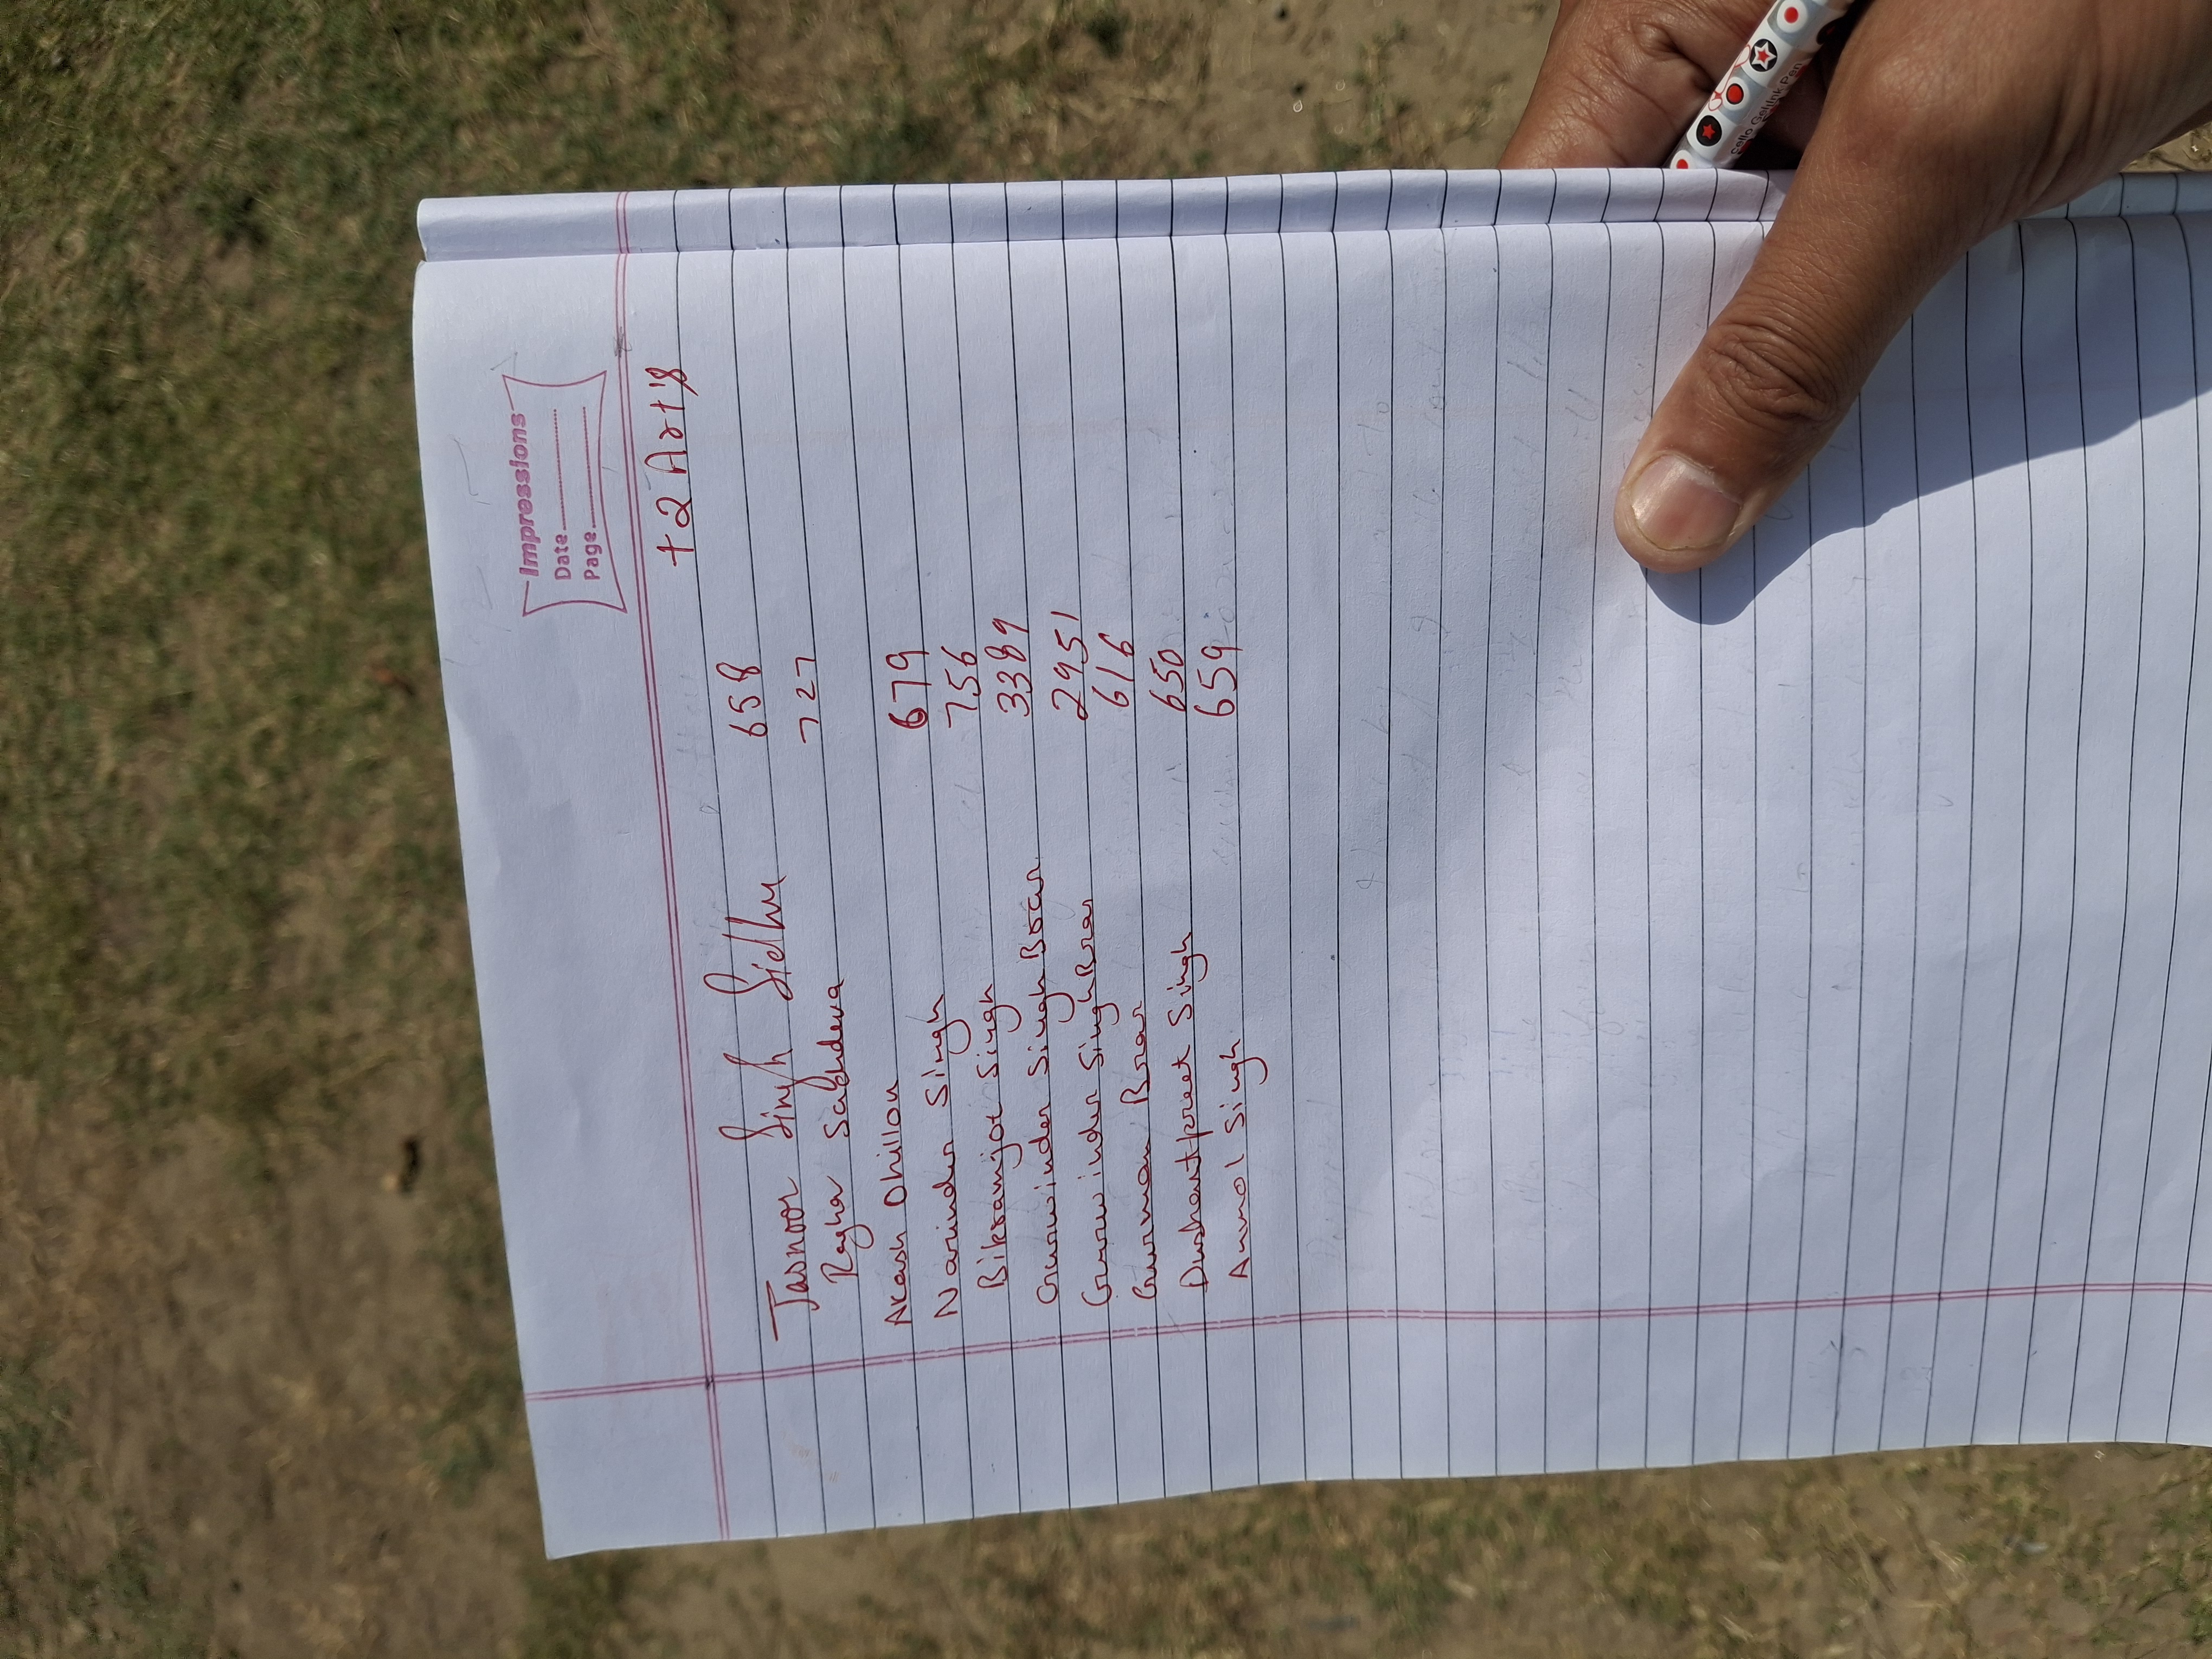 Impressions
Date
Page
+2 Art's
Jasnoor Singh Sidhu 658
Ragha Sachdeva 727
Akash Dhillon 679
Narinder Singh 756
Bikramjot Singh 3389
Gurwinder Singh Brar 2951
Gurwinder Singh Brar 616
Gurman Brar 650
Dushantpreet Singh 659
Anmol Singh
Cello Gelink Pen